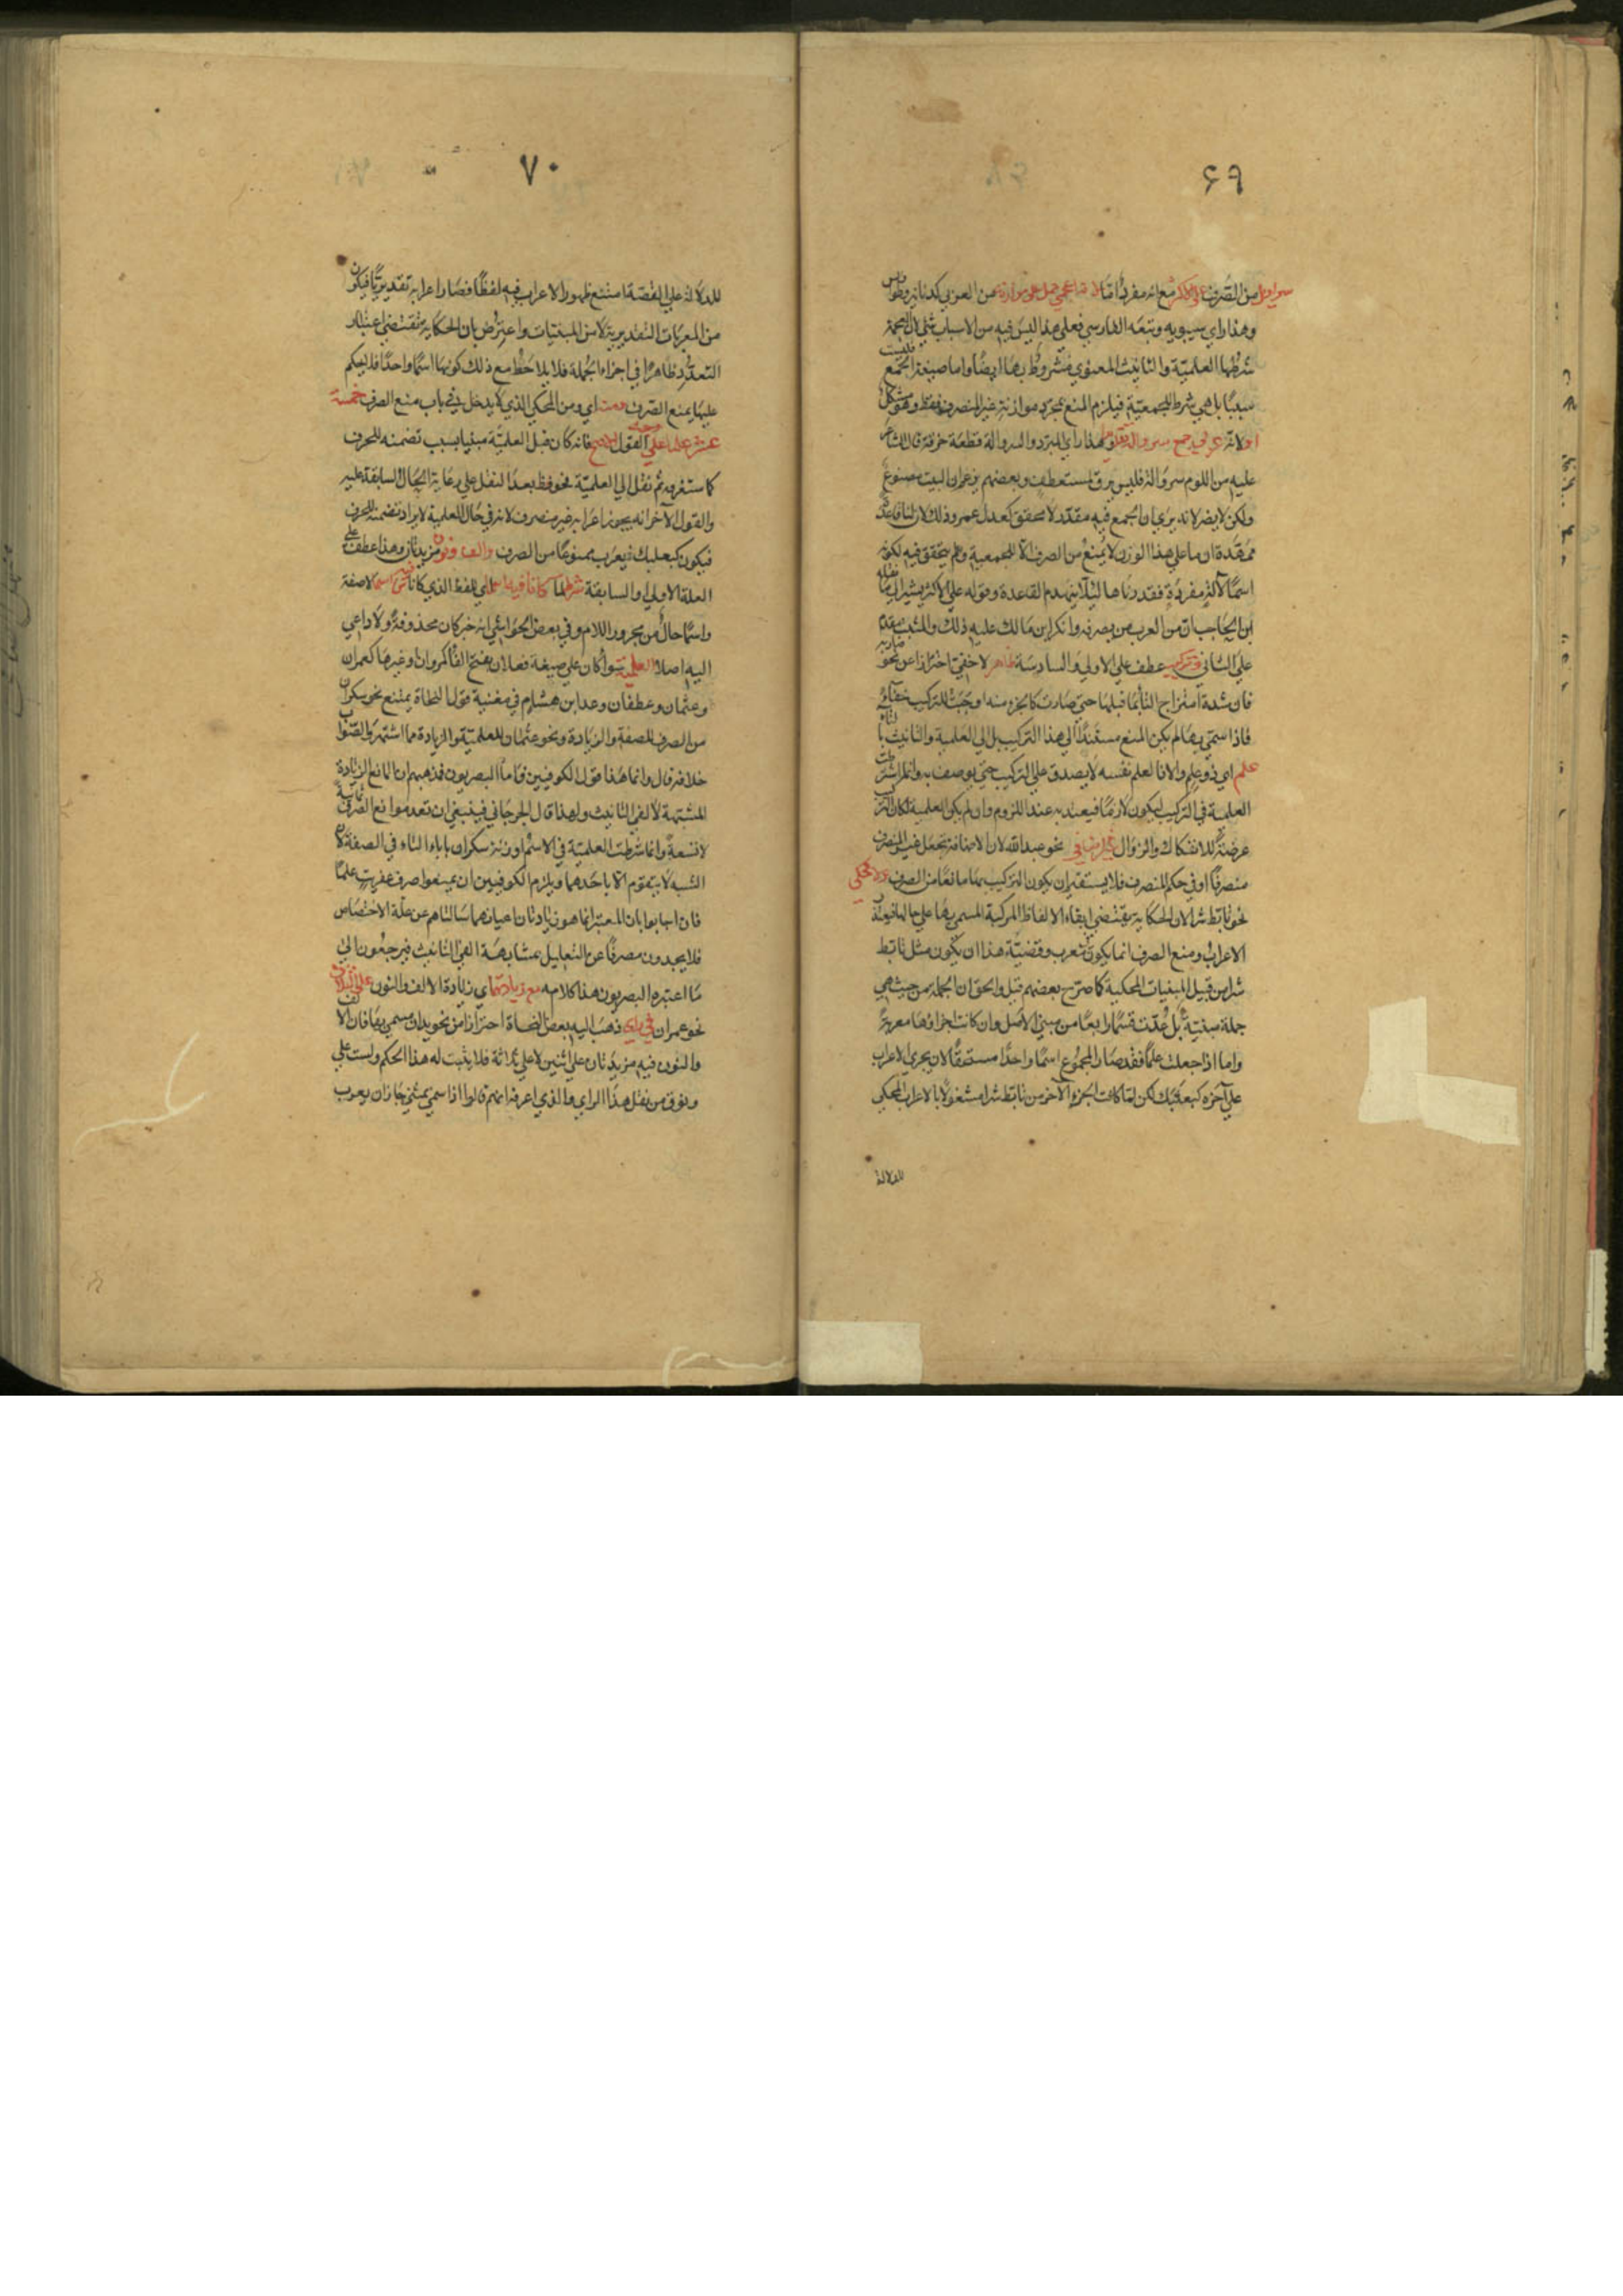 ٦٩
سراويل من الصرف على الاكثر مع انه مفرد اما لانه اعجمي حمل على موازنه من العربي كدنانير وطواويس
وهذا راي سيبويه وتبعه الفارسي فعلى هذا ليس فيه من الاسباب شيء لان العجمة
شرطها العلمية والتانيث المعنوي مشروط بها ايضا واما صيغة الجمع فليست
سببا بل هي شرط للجمعية فيلزم المنع بمجرد موازنة غير المنصرف فقط وهو مشكل
او لانه عربي جمع سروالة تقديرا هذا راي المبرد والسروالة قطعة خرقة قال الشاعر
عليه من اللوم سروالة فليس يرق لمستعطف وبعضهم يزعم ان البيت مصنوع
ولكن لا يضر لانه يرى بان الجمع فيه مقدر لا محقق كعدل عمر وذلك لان لنا قاعدة
ممهدة ان ما على هذا الوزن لا يمنع من الصرف الا للجمعية ولم يتحقق فيه لكونه
اسما لآلة مفردة فقدرناها لئلا ينهدم القاعدة وقوله على الاكثر يشير الى ما نقله
ابن الحاجب ان من العرب من يصرفه وانكر ابن مالك عليه ذلك والمثبت مقدم
على الثاني وتركيب عطف على الاولى والسادسة ظاهر لا خفي احترازا عن نحو ضاربة
فان شدة امتزاج التا بما قبلها حتى صارت كالجزء منه اوجبت للتركيب خفاء
فاذا سمي بها لم يكن المنع مستندا الى هذا التركيب بل الى العلمية والتانيث بالتاء
علم اي ذو علم والا فالعلم نفسه لا يصدق على التركيب حتى يوصف به وانما شرطت
العلمية في التركيب ليكون لازما فيعتد به عند اللزوم وان لم يكن العلمية لكان التركيب
عرضة للانفكاك والزوال غير اضافي نحو عبد الله لان الاضافة تجعل غير المنصرف
منصرفا او في حكم المنصرف فلا يستقيم ان يكون التركيب بها مانعا من الصرف ولا محكي
نحو تابط شرا لان الحكاية يقتضي ابقاء الالفاظ المركبة المسمى بها على حالها فيتعذر
الاعراب ومنع الصرف انما يكون لمعرب وقضية هذا ان يكون مثل تابط
شرا من قبيل المبنيات المحكية كما صرح بعضهم قيل والحق ان الجملة من حيث هي
جملة مبنية بل عدت قسما رابعا من مبني الاصل وان كانت اجزاؤها معربة
واما اذا جعلت علما فقد صار المجموع اسما واحدا مستحقا لان يجري الاعراب
على آخره كبعلبك لكن لما كانت الجزء الآخر من تابط شرا مشغولا بالاعراب المحكي
للدلالة
٧٠
للدلالة على القصة امتنع ظهور الاعراب فيه لفظا فصار اعرابه تقديريا فيكون
من المعربات التقديرية لا من المبنيات واعترض بان الحكاية تقتضي اعتبار
التعدد ظاهرا في اجزاء الجملة فلا يلاحظ مع ذلك كونها اسما واحدا فلا يحكم
عليها بمنع الصرف ومنه اي ومن المحكي الذي لا يدخل في باب منع الصرف خمسة
عشر علما على القول الاصح فانه كان قبل العلمية مبنيا بسبب تضمنه للحرف
كما ستعرفه ثم نقل الى العلمية نحو فظ بعد النقل على رعاية الحال السابقة عليه
والقول الآخر انه يجوز اعرابه غير منصرف لانه في حال العلمية لا يراد تضمنه للحرف
فيكون كبعلبك فيعرب ممنوعا من الصرف والف ونون مزيدتان وهذا عطف على
العلة الاولى او السابقة شرطهما كانا فيه اي اللفظ الذي كانا فيه اسما لا صفة
واسما حال من مجرور اللام وفي بعض الحواشي انه خبر كان محذوفة ولا داعي
اليه اصلا العلمية سواء كان على صيغة فعلان بفتح الفا كمروان وغيرها كعمران
وعثمان وغطفان وعد ابن هشام في مغنيه قول النحاة يمتنع نحو سكران
من الصرف للصفة والزيادة ونحو عثمان للعلمية والزيادة مما اشتهر والصواب
خلافه قال وانما هذا قول الكوفيين فاما البصريون فمذهبهم ان المانع الزيادة
المشبهة لالفي التانيث ولهذا قال الجرجاني فينبغي ان تعد موانع الصرف ثمانية
لا تسعة وانما شرطت العلمية في الاسم او زنة سكران باباء التاء في الصفة لان
الشبه لا يتقوم الا باحدهما ويلزم الكوفيين ان يمنعوا صرف عفريت علما
فان اجابوا بان المعتبر انما هو زيادتان اعيانهما سالناهم عن علة الاختصاص
فلا يجدون مصرفا عن التعليل بمشابهة الفي التانيث فيرجعون الى
ما اعتبره البصريون هذا كلامه مع زيادتهما اي زيادة الالف والنون على ثلاثة
نحو عمران في راي ذهب اليه بعض النحاة احترازا من نحو يدان مسمى بها فان الالف
والنون فيه مزيدتان على اثنين لا على ثلاثة فلا يثبت له هذا الحكم ولست على
وثوق من نقل هذا الراي والذي اعرفه انهم قالوا اذا سمي بمثنى جاز ان يعرب